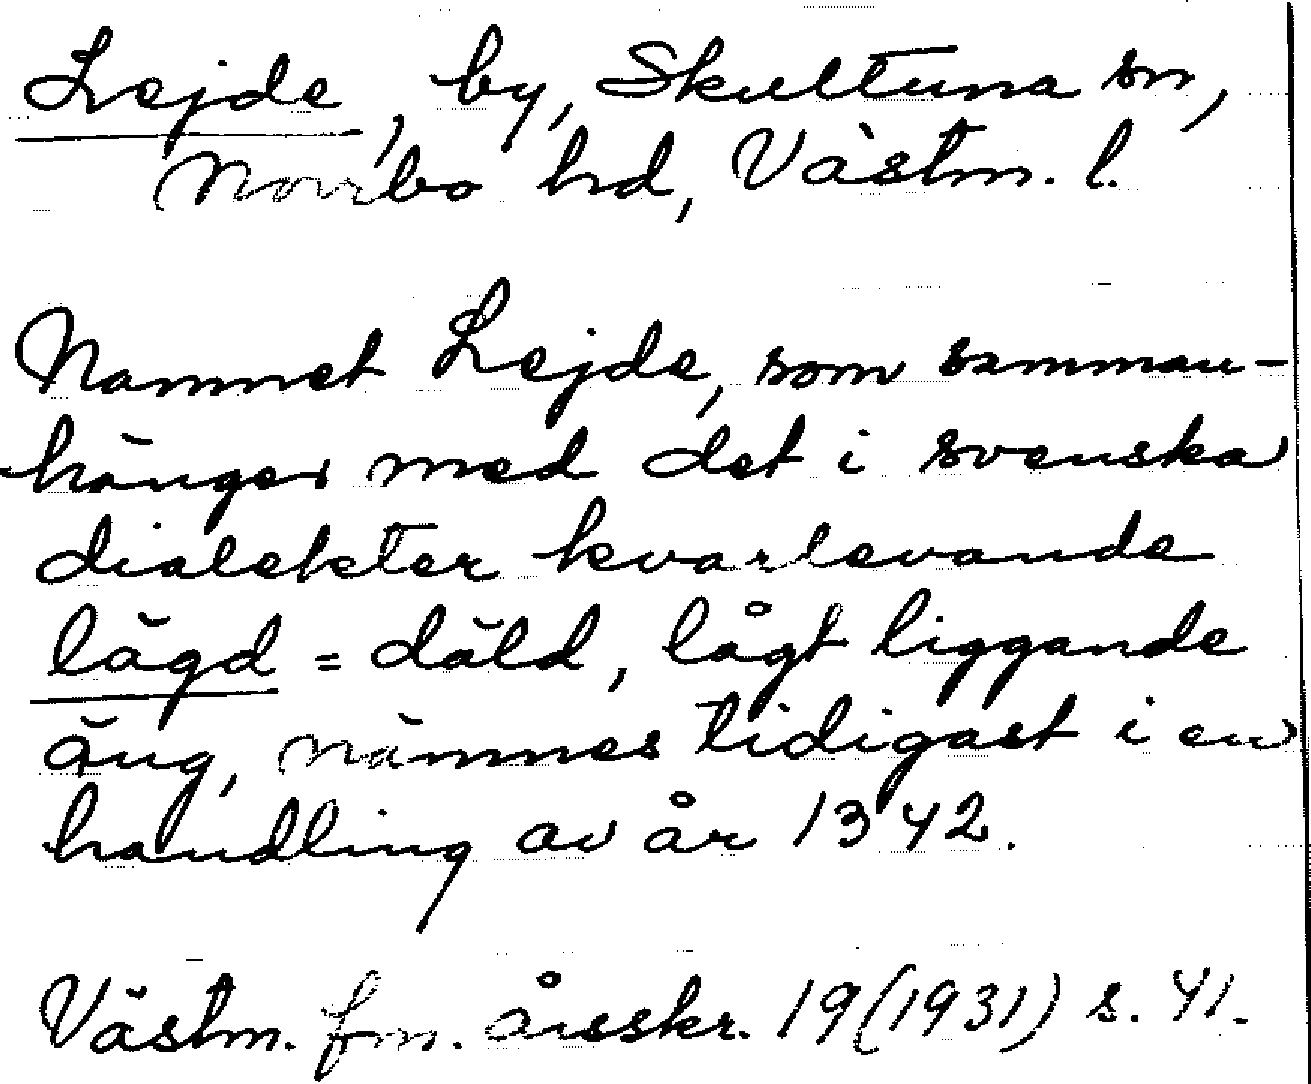 Lejde, by, Skultuna sn,
Norrbo hd, Västm. l.
Namnet Lejde, som samman-
hänger med det i svenska
dialekter kvarlevande
lägd = däld, lågt liggande
äng, nämnes tidigast i en
handling av år 1342.
Västm. fm. årsskr. 19 (1931) s. 41.